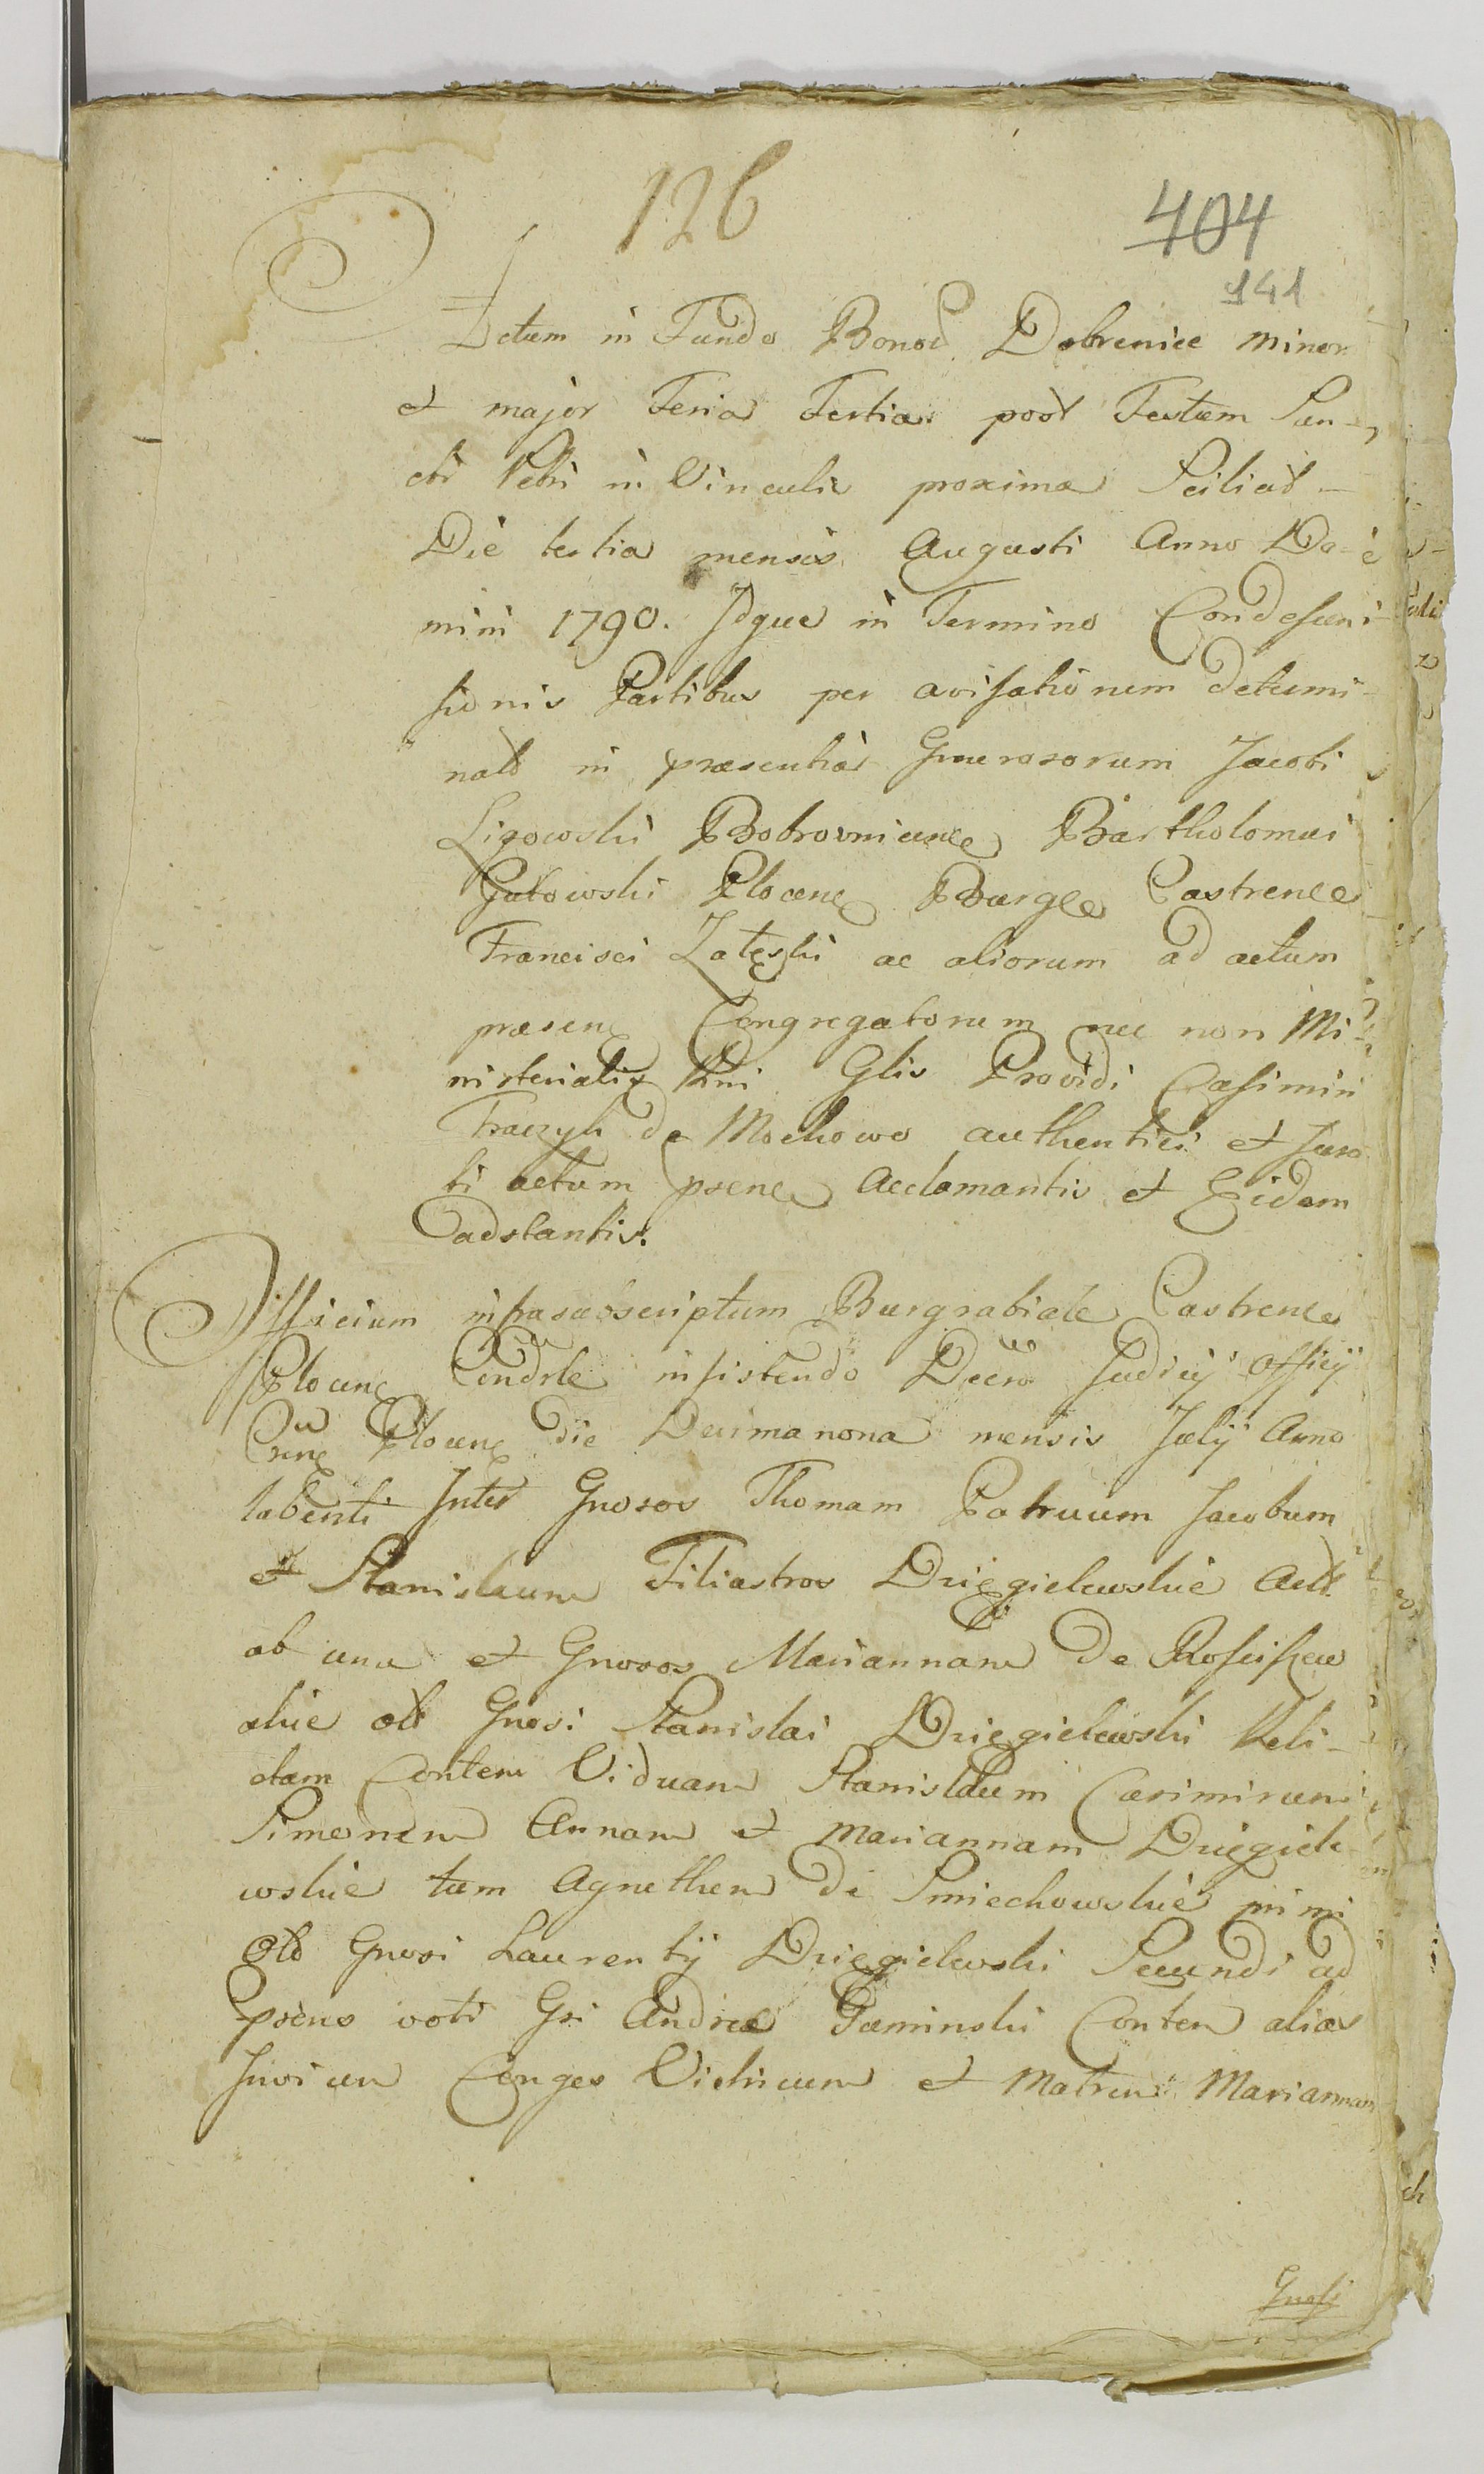 126
404
141
Actum in Fundo Bonor Dobrenice minor
et major Feria Tertia post Festum San-
cti Petri in Vinculis proxima Scilicet
Die tertia mensis Augusti Anno Do-
mini 1790. Idque in Termino Condescen-
sionis Partibus per avisationem determi-
nato in praesentia Generosorum Jacobi
Ligowski Bobrovnicen Bartholomei
Gutowski Plocen Burgs Castren
Francisci Zaleski ac aliorum ad actum
praesen Congregatorum nec non Mi-
nisterialis Rni Glis Providi Casimiri
Fraczyk de Mochowo authentici et Jura
ti actum praesen Acclamantis et Eidem
adstantis.
Officium infrascriptum Burgrabiale Castren
Plocen insistendo Decro Judicij Officij
Plocen die Decimanona mensis Julij Anno
labenti Inter Gnosos Thomam Patruum Jacobum
et Stanislaum Filiastros Dzięgielewskie Act
ab una et Gnosos Mariannam de
skie olt Gnosi Stanislai Dzięgielewski Reli-
ctam Conten Viduam Stanislaum Casimirum
Simonem Annam et Mariannam Dzięgiele
wskie tum Agnethem de Smiechowskie primi
Olt Gnosi Laurentij Dzięgielewski Secundi ad
praens voti Gsi Andreæ Gaminski Conten alias
Invicem Conges Vitricum et Matrem Mariannam
Gnosi